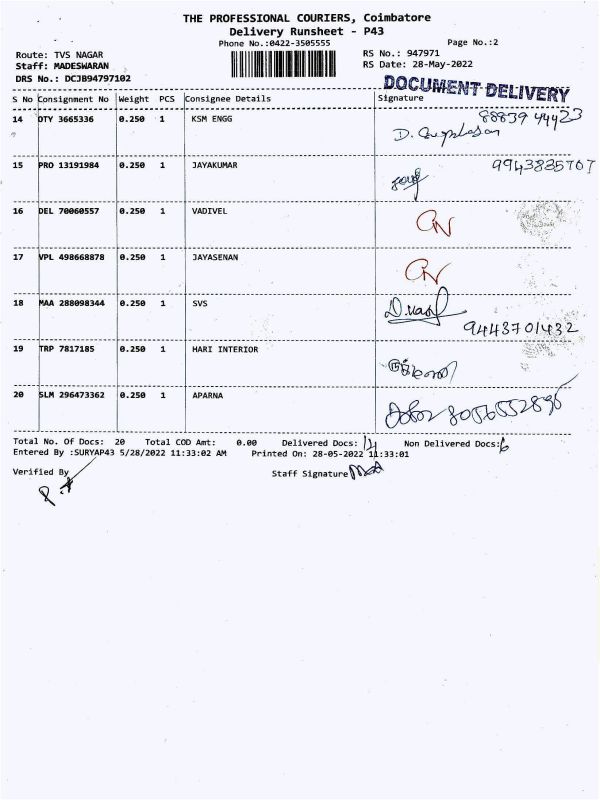 THE PROFESSIONAL COURIERS, Coimbatore
Delivery Runsheet - P43
Phone No.:0422-3505555
Page No.:2
Route: TVS NAGAR
RS No.: 947971
Staff: MADESWARAN
RS Date: 28-May-2022
DRS No.: DCJB94797102
DOCUMENT DELIVERY
S No Consignment No Weight PCS Consignee Details Signature
14 OTY 3665336 0.250 1 KSM ENGG 88839 44423
15 PRO 13191984 0.250 1 JAYAKUMAR 9943835707
16 DEL 70060557 0.250 1 VADIVEL
17 VPL 498668878 0.250 1 JAYASENAN
18 MAA 288098344 0.250 1 SVS
9443701432
19 TRP 7817185 0.250 1 HARI INTERIOR
20 SLM 296473362 0.250 1 APARNA
Total No. Of Docs: 20 Total COD Amt: 0.00 Delivered Docs: 14 Non Delivered Docs: 6
Entered By :SURYAP43 5/28/2022 11:33:02 AM Printed On: 28-05-2022 11:33:01
Verified By Staff Signature